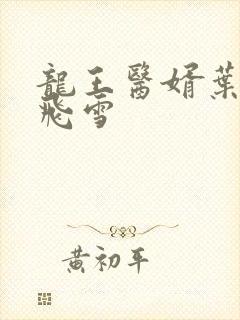 龍王醫婿葉
飛雪
黃初平